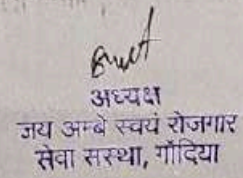 अध्यक्ष
जय अम्बे स्वयं रोजगार
सेवा सस्था, गोंदिया